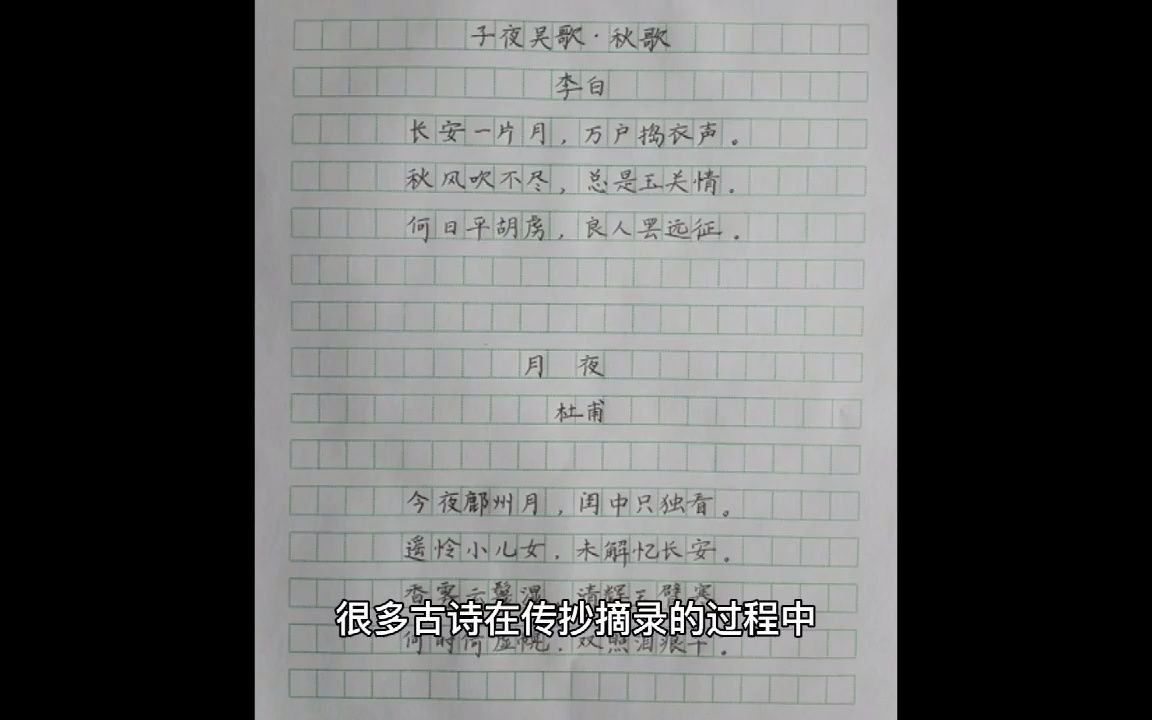 子夜吴歌·秋歌
李白
长安一片月，万户捣衣声。
秋风吹不尽，总是玉关情。
何日平胡虏，良人罢远征。
月 夜
杜甫
今夜鄜州月，闺中只独看。
遥怜小儿女，未解忆长安。
香雾云鬟湿，清辉玉臂寒
很多古诗在传抄摘录的过程中
何时虚幌，双照泪痕干。